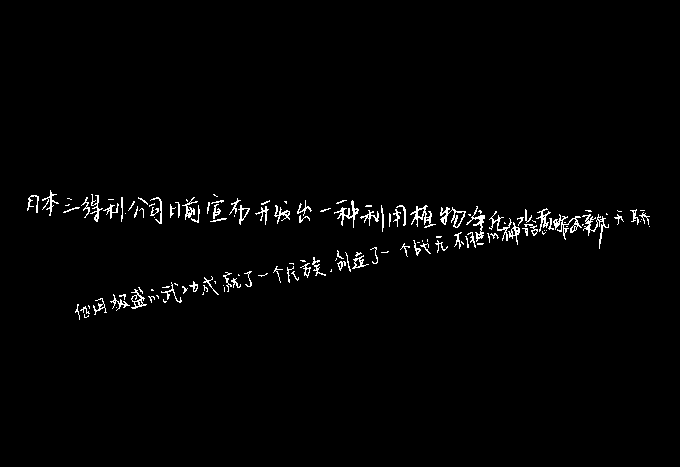 日本三得利公司日前宣布开发出一种利用植物净化
他用极盛的武功成就了一个民族,创造了一个战无不胜的神话